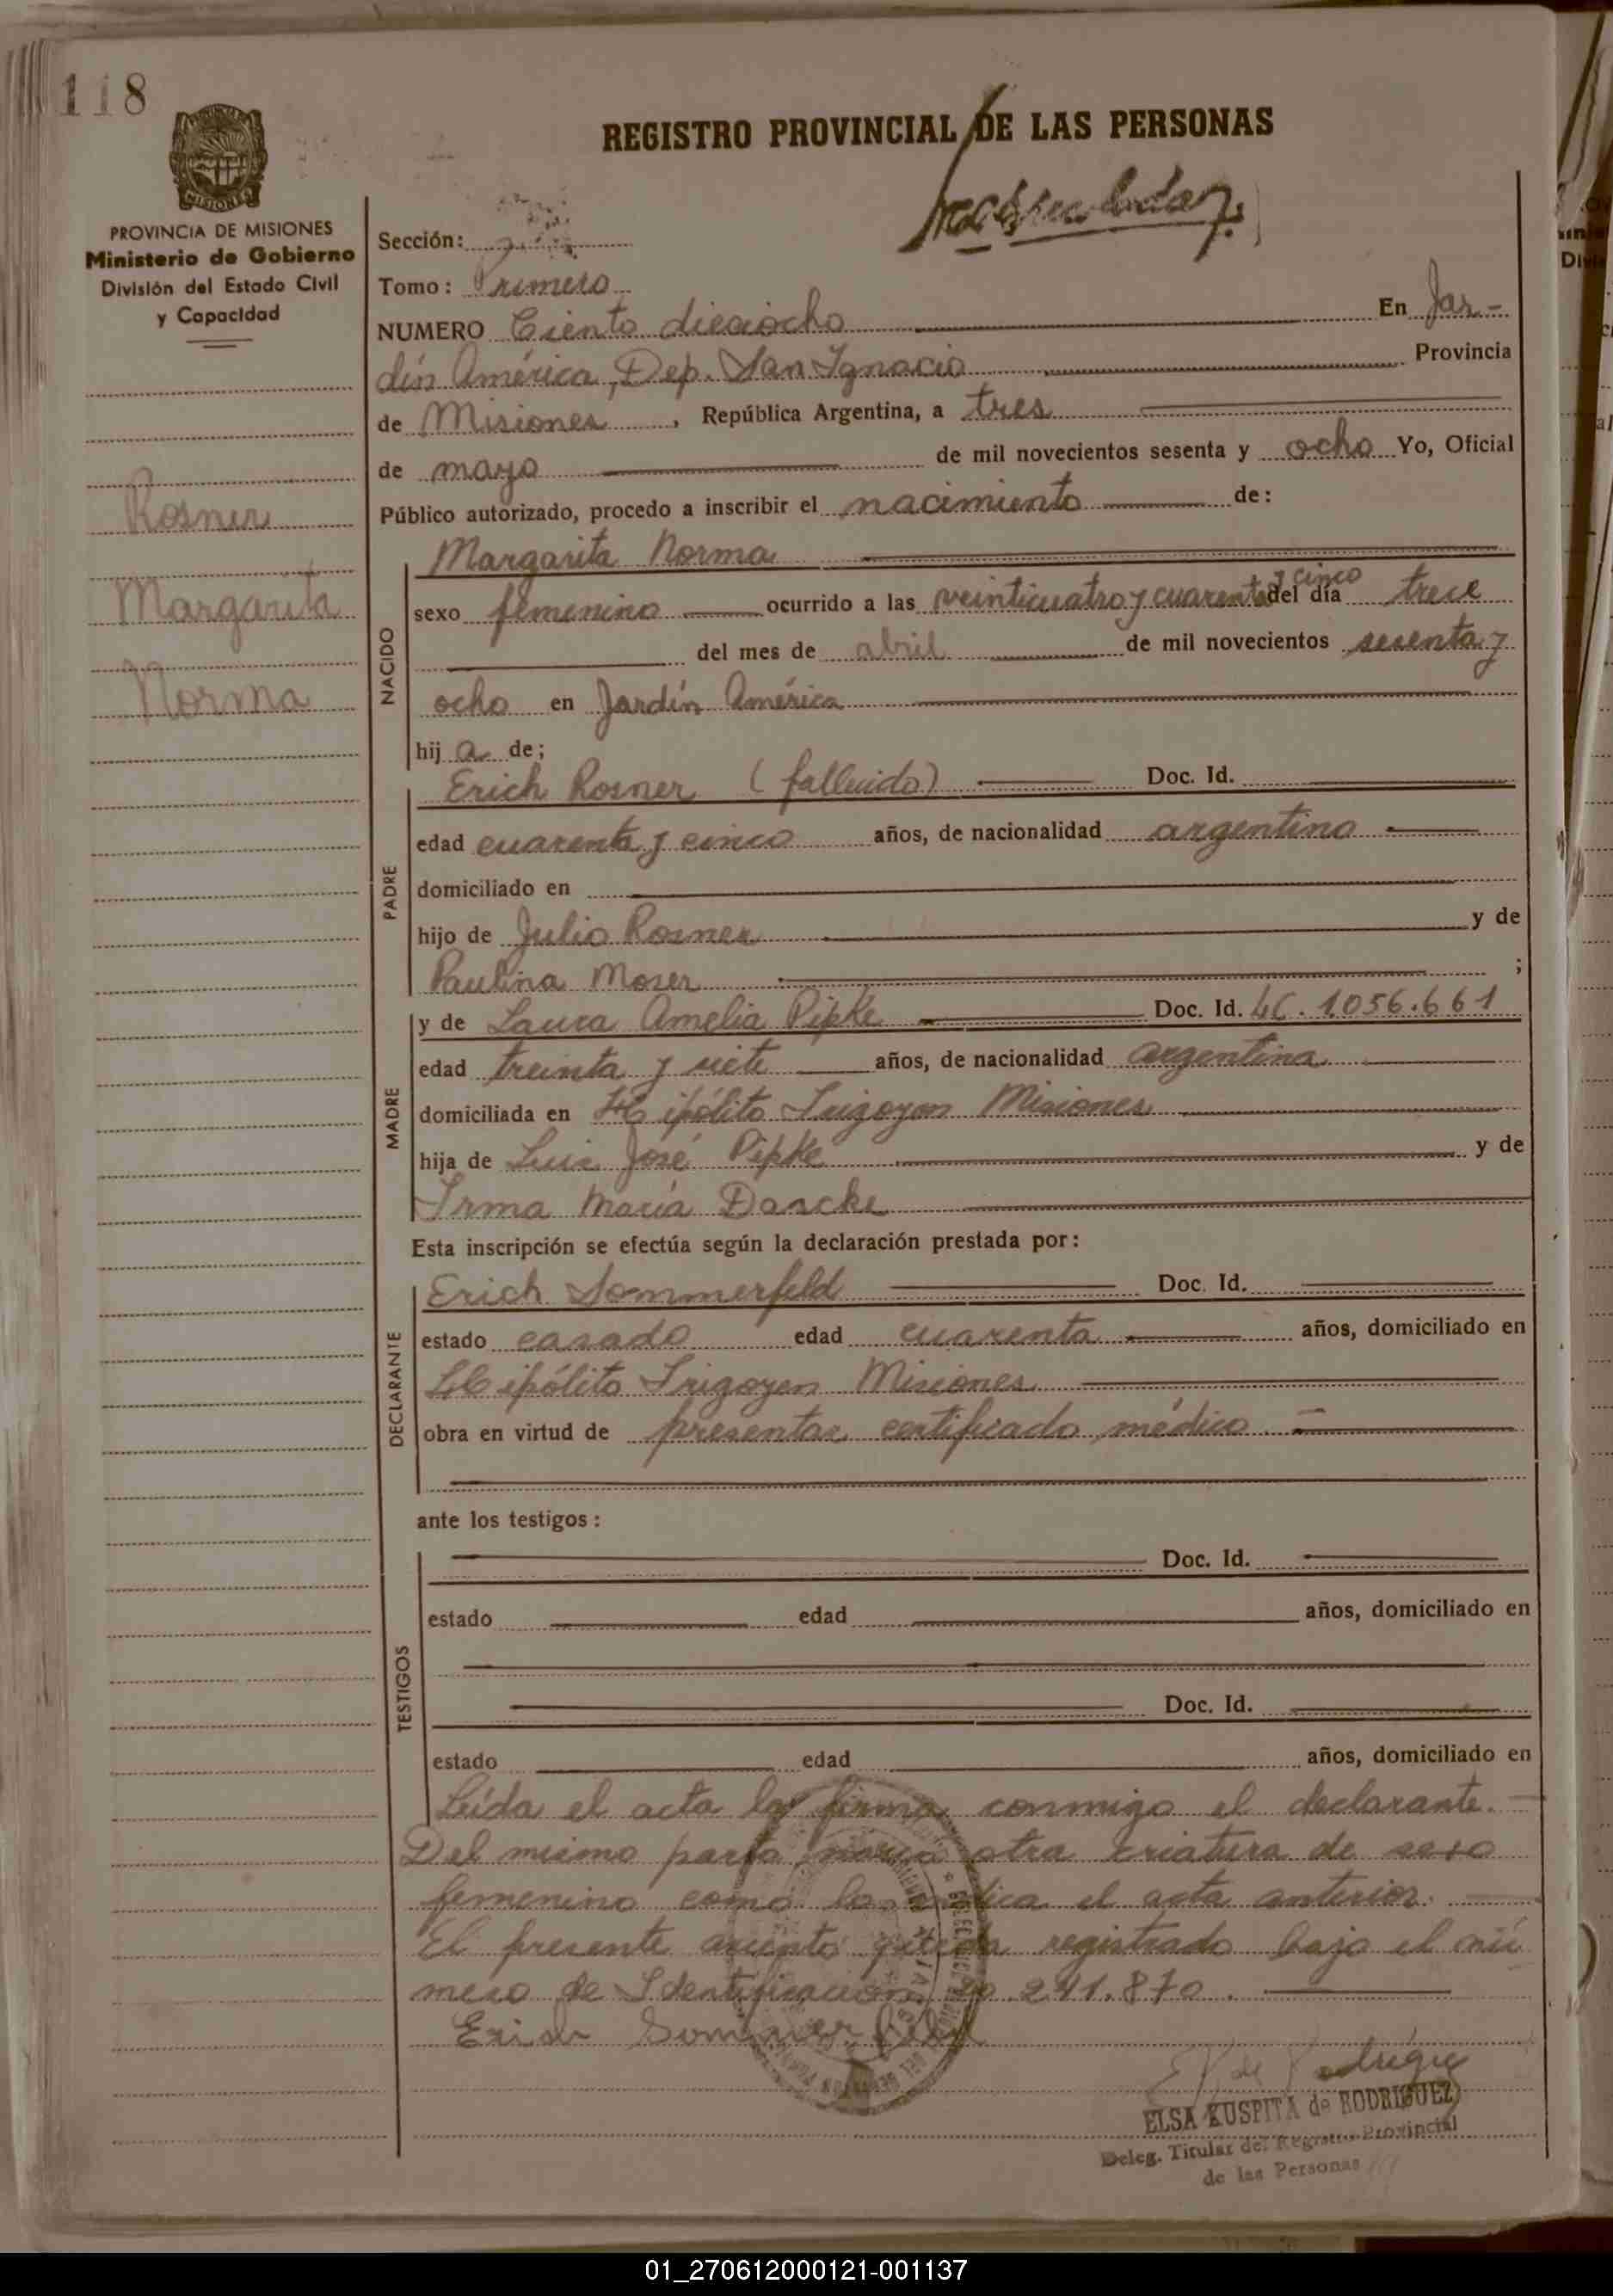 118
REGISTRO PROVINCIAL DE LAS PERSONAS
MISIONES
PROVINCIA DE MISIONES
Ministerio de Gobierno
División del Estado Civil
y Capacidad
Rosner
Margarita
Norma
Sección:
Tomo: Primero
NUMERO Ciento dieciocho En Jar-
dín América, Dep. San Ignacio Provincia
de Misiones, República Argentina, a tres
de mayo de mil novecientos sesenta y ocho Yo, Oficial
Público autorizado, procedo a inscribir el nacimiento de:
NACIDO
Margarita Norma
sexo femenino ocurrido a las veinticuatro y cuarenta y cinco del día trece
del mes de abril de mil novecientos sesenta y
ocho en Jardín América
hija de;
PADRE
Erich Rosner (fallecido) Doc. Id.
edad cuarenta y cinco años, de nacionalidad argentino
domiciliado en
hijo de Julio Rosner y de
Paulina Moser ;
MADRE
y de Laura Amelia Pipke Doc. Id. LC. 1.056.661
edad treinta y siete años, de nacionalidad argentina
domiciliada en Hipólito Irigoyen Misiones
hija de Luis José Pipke y de
Irma María Dascke
Esta inscripción se efectúa según la declaración prestada por:
DECLARANTE
Erich Sommerfeld Doc. Id.
estado casado edad cuarenta años, domiciliado en
Hipólito Irigoyen Misiones
obra en virtud de presentar certificado médico.
ante los testigos:
TESTIGOS
Doc. Id.
estado edad años, domiciliado en
Doc. Id.
estado edad años, domiciliado en
Leída el acta la firma conmigo el declarante.
Del mismo parto nació otra criatura de sexo
femenino como lo indica el acta anterior.
El presente asiento queda registrado bajo el nú
mero de Identificación 241.870.
Erich Sommerfeld
ELSA KUSPITA de RODRIGUEZ
Deleg. Titular del Registro Provincial
de las Personas
01_270612000121-001137